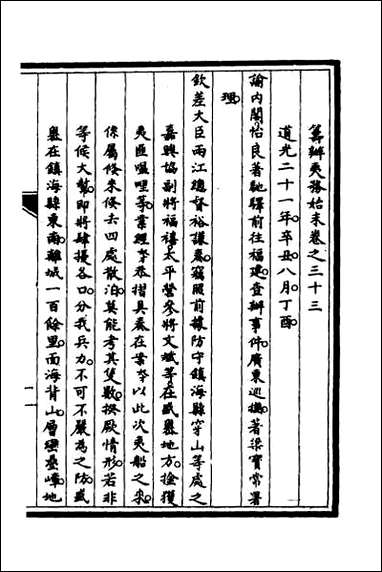 籌辦夷務始末卷之三十三
道光二十一年辛丑八月丁酉
諭內閣怡良著馳驛前往福建查辦事件廣東巡撫著梁寶常署
理
欽差大臣兩江總督裕謙奏竊照前據防守鎮海縣穿山等處之
嘉興協副將福禧太平營參將文斌等在盛嶴地方搶獲
夷匪嗢哩等業經李恭摺具奏在案李以此次夷船之來
倏屬倏來倏去四處散泊莫能考其隻數揆厥情形若非
等候大幫即將肆擾各口分我兵力不可不嚴為之防盛
嶴在鎮海縣東南離城一百餘里面海背山層巒疊嶂地
一